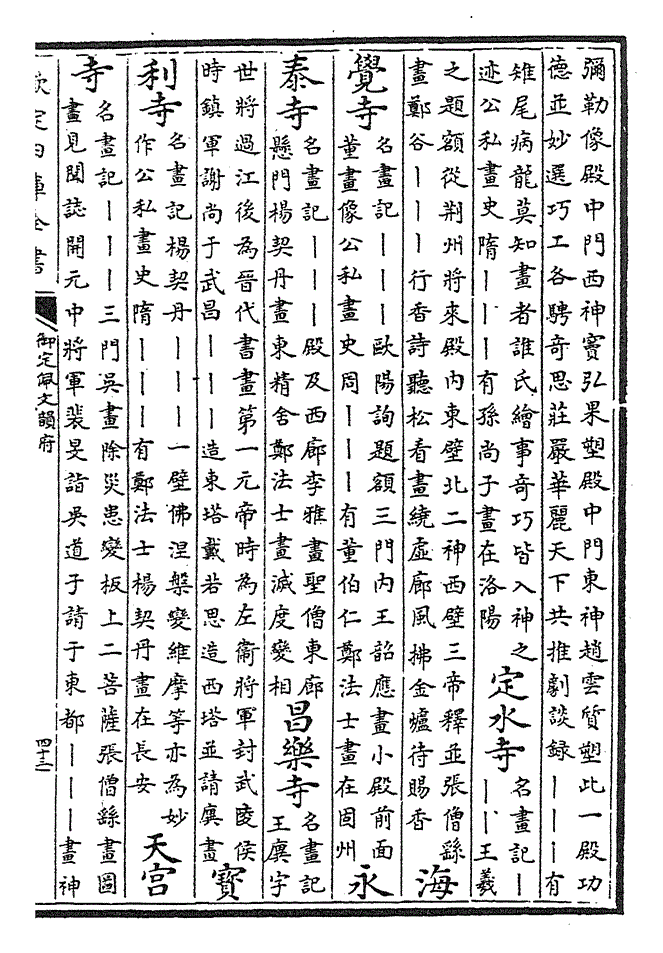 彌勒像殿中門西神竇弘果塑殿中門東神趙雲質塑此一殿功
德並妙選巧工各騁奇思莊嚴華麗天下共推劇談錄｜｜｜有
雉尾病龍莫知畫者誰氏繪事奇巧皆入神之
迹公私畫史隋｜｜｜有孫尚子畫在洛陽
定水寺
名畫記｜
｜｜王羲
之題額從荆州將來殿内東壁北二神西壁三帝釋並張僧繇
畫鄭谷｜｜｜行香詩聽松看畫繞虛廊風拂金爐待賜香
海
覺寺
名畫記｜｜｜歐陽詢題額三門内王韶應畫小殿前面
董畫像公私畫史周｜｜｜有董伯仁鄭法士畫在固州
永
泰寺
名畫記｜｜｜殿及西廊李雅畫聖僧東廊
懸門楊契丹畫東精舍鄭法士畫滅度變相
昌樂寺
名畫記
王廙字
世將過江後為晉代書畫第一元帝時為左衛將軍封武陵侯
時鎮軍謝尚于武昌｜｜｜造東塔戴若思造西塔並請廙畫
寶
利寺
名畫記楊契丹｜｜｜一壁佛涅槃變維摩等亦為妙
作公私畫史隋｜｜｜有鄭法士楊契丹畫在長安
天宮
寺
名畫記｜｜｜三門吳畫除災患變板上二菩薩張僧繇畫圖
畫見聞誌開元中將軍裴旻詣吳道子請于東都｜｜｜畫神
欽定四庫全書
御定佩文韻府
四十三